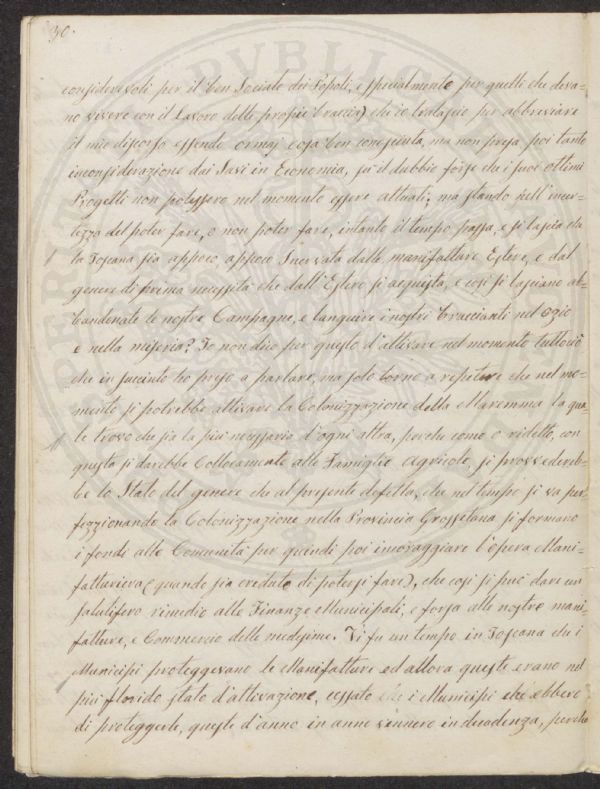 30.
considerevoli per il ben Sociale dei Popoli, e specialmente per quelli che devo=
no vivere con il Lavoro delle proprie braccia) che io tralascio per abbreviare
il mio discorso essendo ormaj cosa ben conosciuta, ma non presa poi tanto
inconsiderazione dai Savi in Economia, sù il dubbio forse che i suoi ottimi
Progetti non potessero nel momento essere attuati; ma stando nell'incer=
tezza del poter fare, o non poter fare, intanto il tempo passa, e si lascia che
la Toscana sia appoco appoco Snervata dalle manifatture Estere, e dal
genere di prima necessità che dall'Estero si acquista, e così si lasciano ab=
bandonate le nostre Campagne, e languire i nostri braccianti nel Ozio
e nella miseria? Io non dico per questo d'attivare nel momento tuttociò
che in succinto ho preso a parlare, ma solo torno a repetere che nel mo=
mento si potrebbe attivare la Colonizzazione della Maremma la qua=
le trovo che sia la più necessaria d'ogni altra, perchè come o ridetto, con
questa si darebbe Collocamento alle Famiglie Agricole, si provvedereb=
be lo Stato del genere che al presente difetta, che nel tempo si va per=
fezzionando la Colonizzazione nella Provincia Grossetana si formano
i fondi alle Comunità per quindi poi incoraggiare l'opera Mani=
fatturiera (quando sia creduto di potersi fare), che così si può dare un
salutifero rimedio alle Finanze Municipali, e forza alle nostre mani=
fatture, e Commercio delle medesime. Vi fu un tempo in Toscana che i
Municipi proteggevano le Manifatture ed allora queste erano nel
più florido stato d'attivazione, cessato che i Municipi che ebbero
di proteggerle, queste d'anno in anno vennero in decadenza, perchè